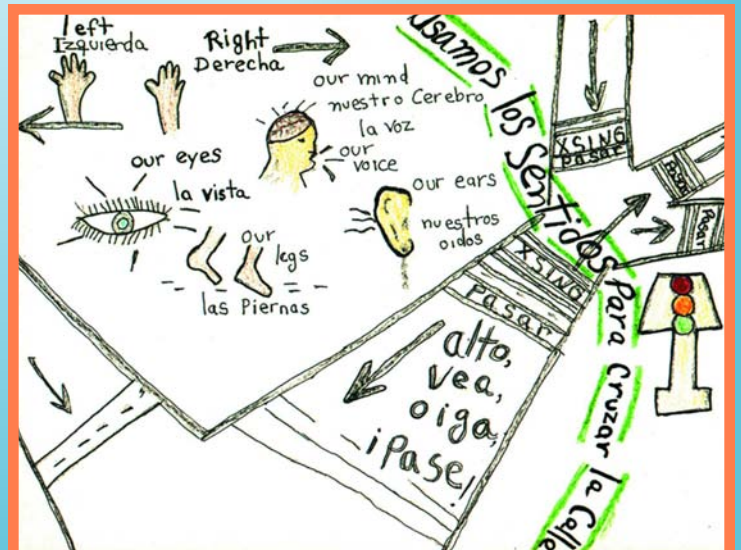 left
Izquierda
Right
Derecha
our mind
nuestro Cerebro
la voz
our
voice
our eyes
la vista
our ears
nuestros
oidos
our
legs
las Piernas
Usamos los Sentidos Para Cruzar la Calle
XSING
Pasar
Pasar
Pasar
XSING
Pasar
alto,
vea,
oiga,
¡Pase!